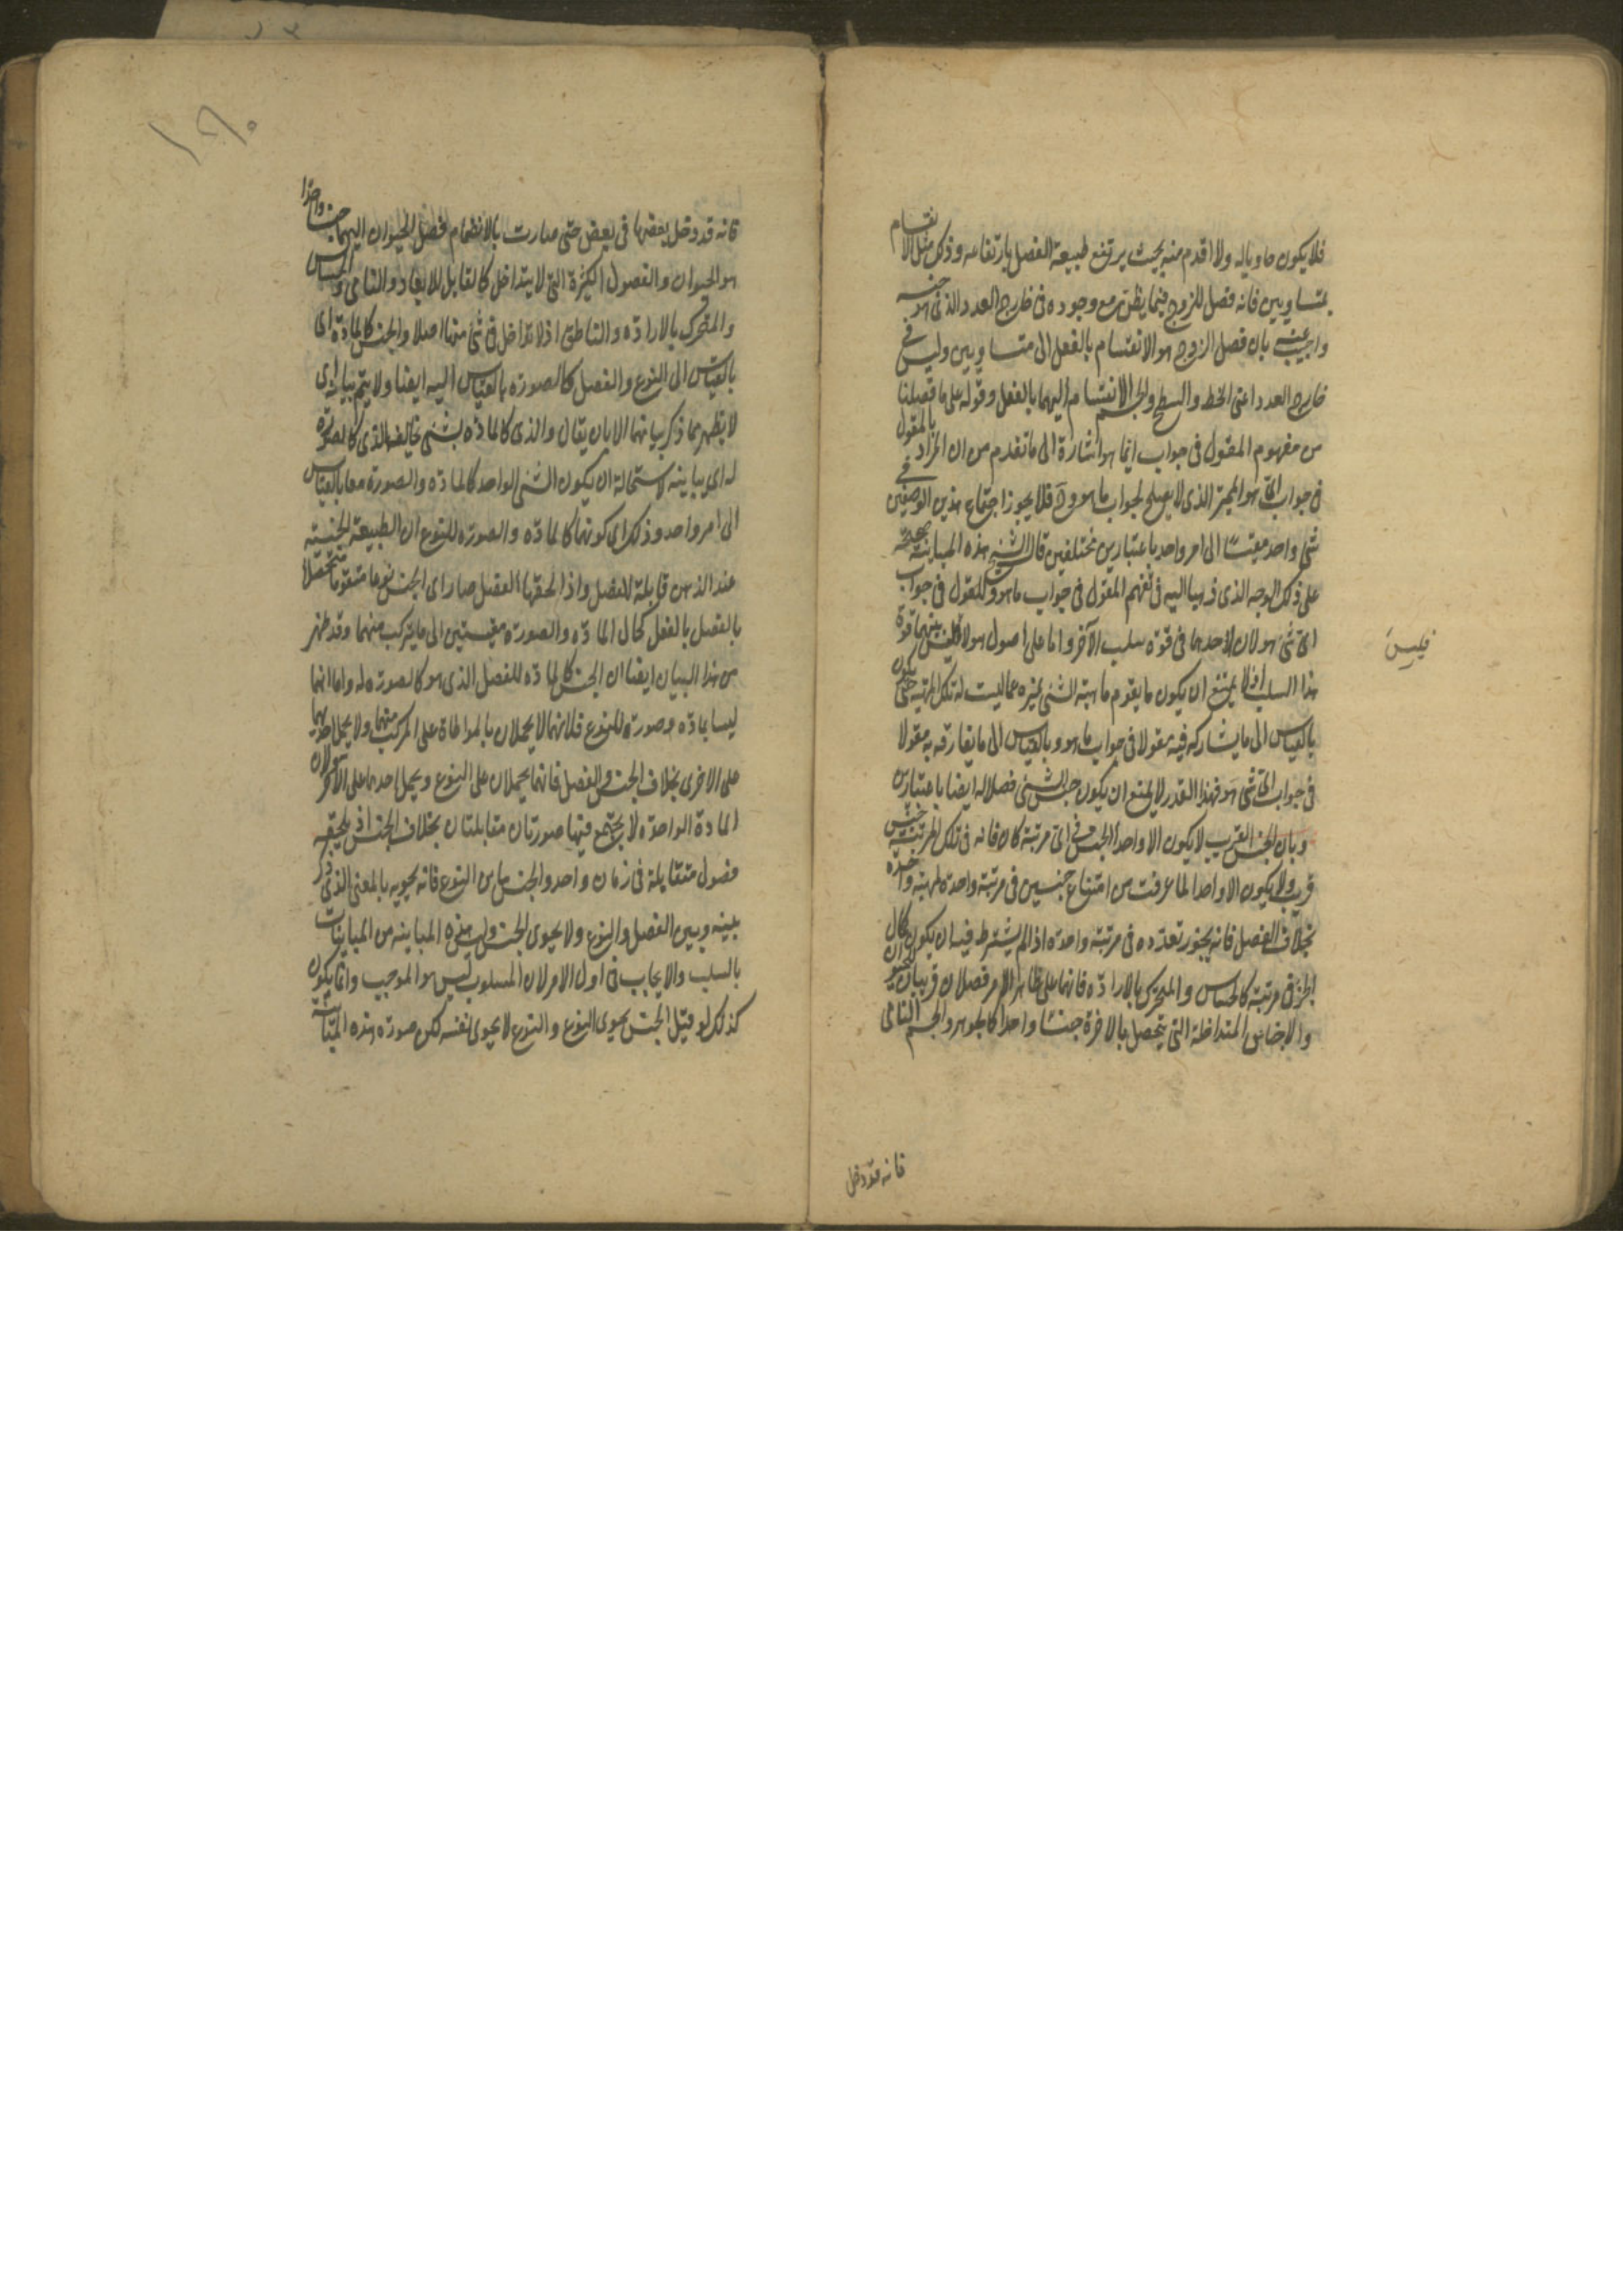 فلا يكون حاويا له ولا اقدم منه بحيث يرتفع طبيعة الفصل بارتفاعه وذلك مثل الانقسام
بمتساويين فانه فصل للزوج فيما يظن مع وجوده فى خارج العدد الذى هو جنسه
واجيب عنه بان فصل الزوج هو الانقسام بالفعل الى متساويين وليس فى
خارج العدد اعنى الخط والسطح والجسم الانقسام اليهما بالفعل وقوله على ما فصلنا
من مفهوم المقول فى جواب ايما هو اشارة الى ما تقدم من ان المراد بالمقول
فى جواب اى هو المميز الذى لا يصلح لجواب ما هو و ح فلا يجوز اجتماع هذين الوصفين فى
شئ واحد مقيسًا الى امر واحد باعتبارين مختلفين قال الشيخ هذه المباينة صحيحة
على ذلك الوجه الذى ذهبنا اليه فى تفهم المقول فى جواب ما هو والمقول فى جواب
اى شئ هو لان لاحدهما فى قوة سلب الآخر واما على اصول هولا فليس بينهما قوة
هذا السلب اذ لا يمتنع ان يكون ما يقوم ماهية الشئ غيره عما ليست له تلك المهية حتى يكون
بالقياس الى ما يشاركه فيه مقولا فى جواب ما هو وبالقياس الى ما يفارقه به مقولا
فى جواب اى شئ هو فهذا القدر لا يمنع ان يكون جنس الشئ فصلا له ايضا باعتبارين
وبان الجنس القريب لا يكون الا واحدا الجنس فى اى مرتبة كان فانه فى تلك المرتبة جنس
قريب ولا يكون الا واحدا لما عرفت من امتناع جنسين فى مرتبة واحدة لمهية واحدة
بخلاف الفصل فانه يجوز تعدده فى مرتبة واحدة اذ لم يشترط فيه ان يكون كمال
الجزء فى مرتبة كالحساس والمتحرك بالارادة فانهما على ظاهر الامر فصلان قريبان للحيوان
والاجناس المتداخلة التى يتحصل بالاخرة جنسًا واحدا كالجوهر والجسم النامى
فليس
فانه قد دخل
١٩٠
فانه قد دخل بعضها فى بعض حتى صارت بالانضمام فصل الحيوان اليهما جنسا واحدا
هو الحيوان والفصول الكثيرة التى لا يتداخل كالقابل للابعاد والنامى والحساس
والمتحرك بالارادة والناطق اذ لا تداخل فى شئ منها اصلا والجنس كالمادة اى
بالقياس الى النوع والفصل كالصورة بالقياس اليه ايضا ولا يتم بيانه اى
لا يظهر مما ذكر بيانهما الا بان يقال والذى كالمادة لشئ يخالف الذى كالصورة
له اى يباينه لاستحالة ان يكون الشئ الواحد كالمادة والصورة معا بالقياس
الى امر واحد وذلك اى كونهما كالمادة والصورة للنوع ان الطبيعة الجنسية
عند الذهن قابلة للفصل واذا لحقها الفصل صار اى الجنس نوعا متقوما متحصلا
بالفصل بالفعل كحال المادة والصورة مقيستين الى ما يتركب منهما وقد ظهر
من هذا البيان ايضا ان الجنس كالمادة للفصل الذى هو كالصورة له واما انهما
ليسا مادة وصورة للنوع فلانهما لا يحملان بالمواطاة على المركب منهما ولا يحمل احديهما
على الاخرى بخلاف الجنس والفصل فانهما يحملان على النوع ويحمل احدهما على الآخر ولان
المادة الواحدة لا يجتمع فيها صورتان متقابلتان بخلاف الجنس اذ يلحقه
فصول متقابلة فى زمان واحد والجنس يباين النوع فانه يحويه بالمعنى الذى ذكر
بينه وبين الفصل والنوع ولا يحوى الجنس وليس هذه المباينة من المباينات
بالسلب والايجاب فى اول الامر لان المسلوب ليس هو الموجب وانما يكون
كذلك لو قيل الجنس يحوى النوع والنوع لا يحوى نفسه لكن صورة هذه المباينة